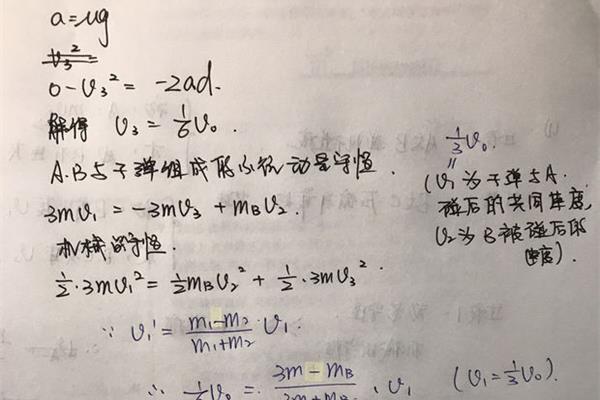 a=μg
0-v₃²=-2ad.
解得 v₃=1/6 v₀.
A.B与子弹组成的系统动量守恒.
3mv₁=-3mv₃+m_Bv₂.
机械能守恒.
1/2·3mv₁²=1/2m_Bv₂²+1/2·3mv₃².
∵ v₁'=(m₁-m₂)/(m₁+m₂)·v₁.
∴ 1/6v₀=(3m-m_B)/(3m+m_B)·v₁ (v₁=1/3v₀).
1/3v₀.
=
(v₁为子弹与A.
碰后的共同速度,
v₂为B被碰后的
速度).